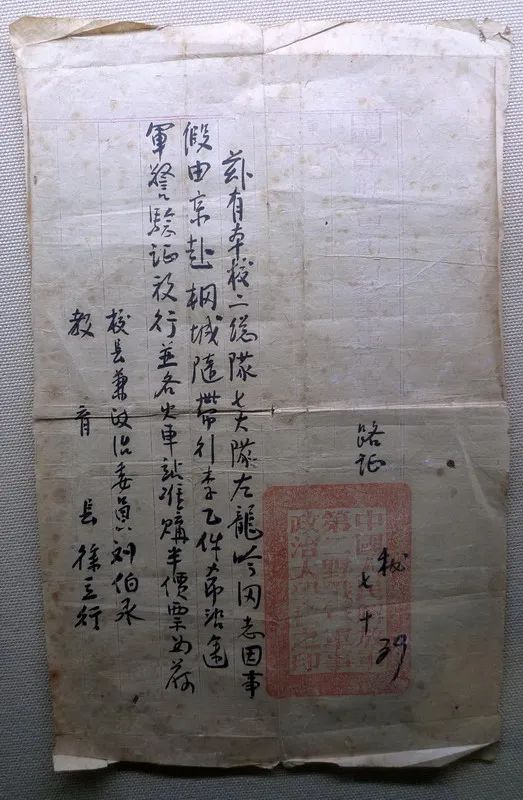 路证
校 七十
中國人民解放軍
第二野戰軍軍事
政治大學校之印
兹有本校二總隊七大隊左龍吟同志因事
假由京赴桐城隨帶行李乙件希沿途
軍警驗证放行並各火車站准購半價票为荷
校長兼政治委員刘伯承
教育長徐立行